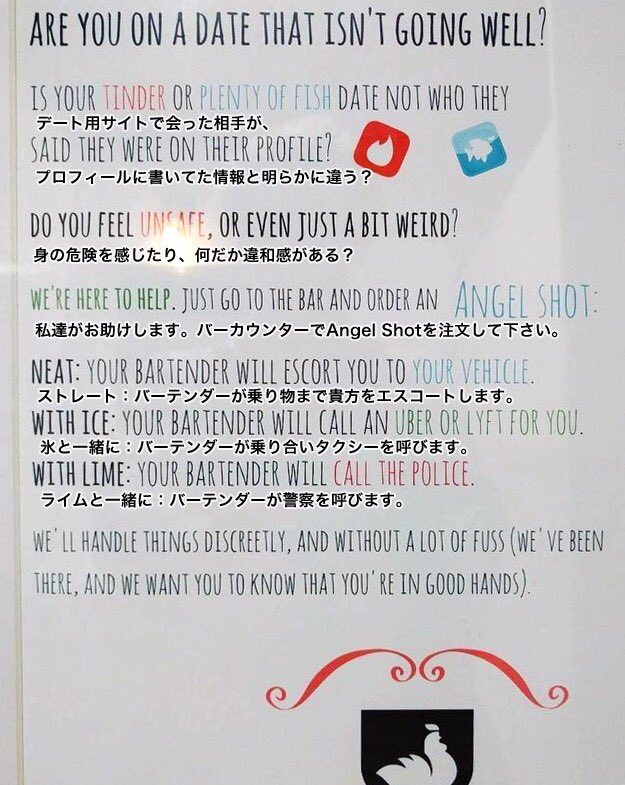 ARE YOU ON A DATE THAT ISN'T GOING WELL?
IS YOUR TINDER OR PLENTY OF FISH DATE NOT WHO THEY
デート用サイトで会った相手が、
SAID THEY WERE ON THEIR PROFILE?
プロフィールに書いてた情報と明らかに違う？
DO YOU FEEL UNSAFE, OR EVEN JUST A BIT WEIRD?
身の危険を感じたり、何だか違和感がある？
WE'RE HERE TO HELP. JUST GO TO THE BAR AND ORDER AN ANGEL SHOT:
私達がお助けします。バーカウンターでAngel Shotを注文して下さい。
NEAT: YOUR BARTENDER WILL ESCORT YOU TO YOUR VEHICLE.
ストレート：バーテンダーが乗り物まで貴方をエスコートします。
WITH ICE: YOUR BARTENDER WILL CALL AN UBER OR LYFT FOR YOU.
氷と一緒に：バーテンダーが乗り合いタクシーを呼びます。
WITH LIME: YOUR BARTENDER WILL CALL THE POLICE.
ライムと一緒に：バーテンダーが警察を呼びます。
WE'LL HANDLE THINGS DISCREETLY, AND WITHOUT A LOT OF FUSS (WE'VE BEEN
THERE, AND WE WANT YOU TO KNOW THAT YOU'RE IN GOOD HANDS).